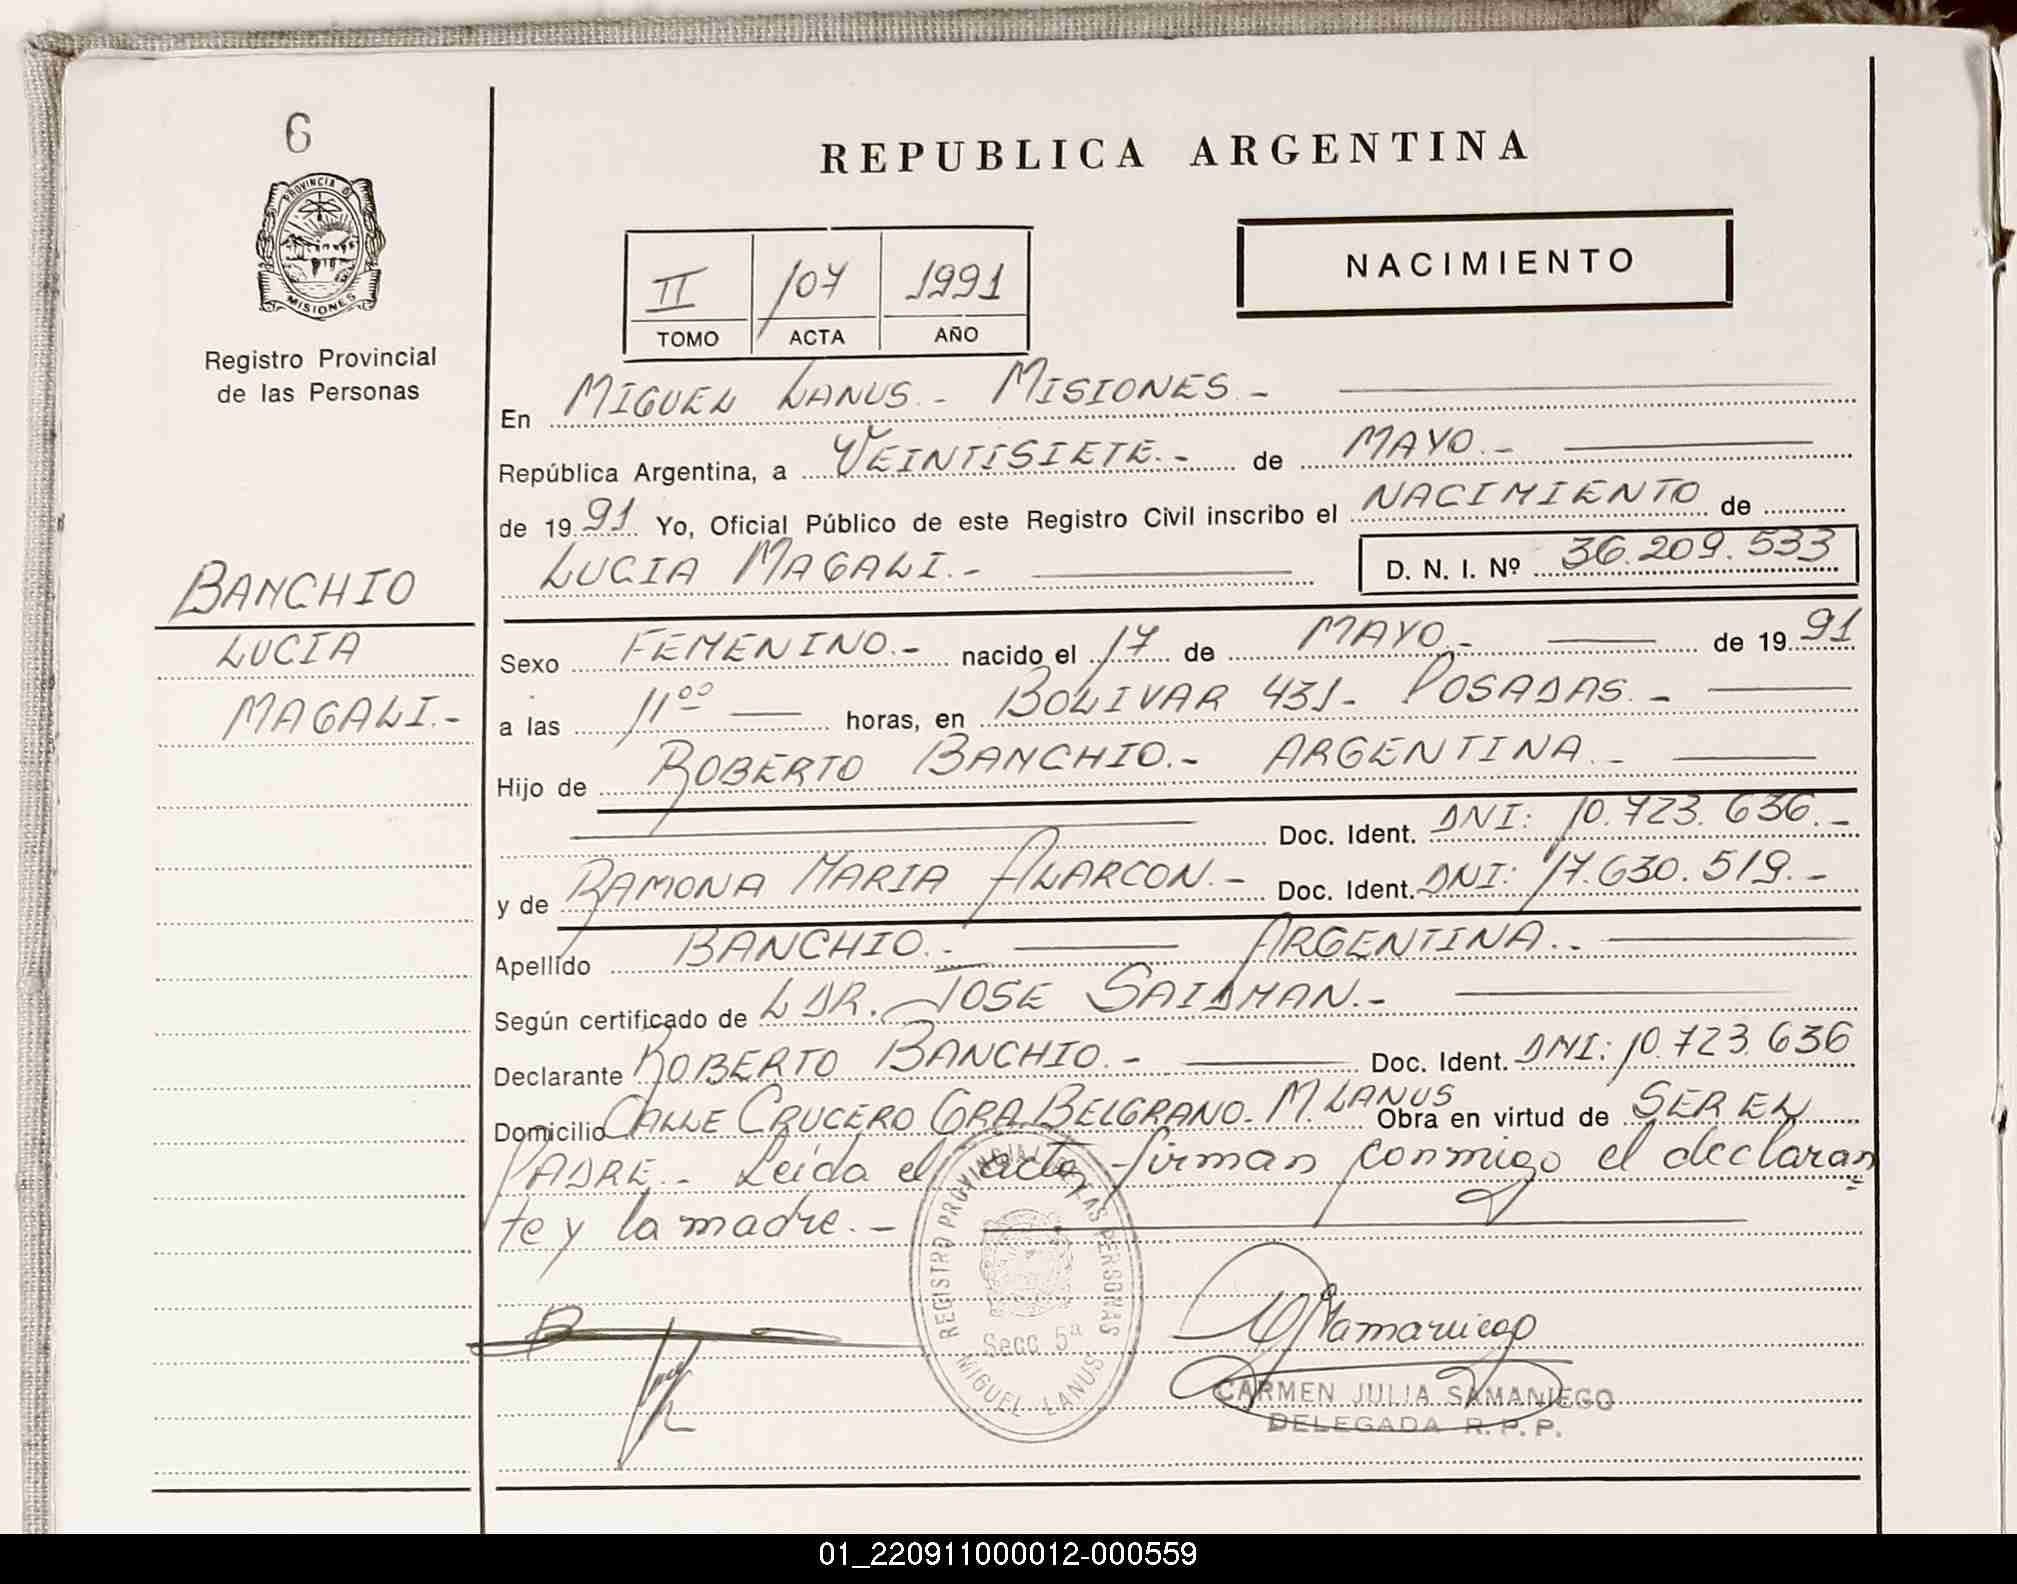 6
PROVINCIA DE
MISIONES
Registro Provincial
de las Personas
REPUBLICA ARGENTINA
II 107 1991
TOMO ACTA AÑO
NACIMIENTO
En MIGUEL LANUS.- MISIONES.-
República Argentina, a VEINTISIETE.- de MAYO.-
de 19 91 Yo, Oficial Público de este Registro Civil inscribo el NACIMIENTO de
LUCIA MAGALI.- D. N. I. Nº 36.209.533
BANCHIO
LUCIA
MAGALI.-
Sexo FEMENINO.- nacido el 17 de MAYO.- de 19 91
a las 11⁰⁰ horas, en BOLIVAR 431- POSADAS.-
Hijo de ROBERTO BANCHIO.- ARGENTINA.-
Doc. Ident. DNI: 10.723.636.-
y de RAMONA MARIA ALARCON.- Doc. Ident. DNI: 17.630.519.-
Apellido BANCHIO.- ARGENTINA.-
Según certificado de L DR. JOSE SAIDMAN.-
Declarante ROBERTO BANCHIO.- Doc. Ident. DNI: 10.723.636
Domicilio CALLE CRUCERO GRA. BELGRANO. M. LANUS Obra en virtud de SER EL
PADRE.- Leida el acta, firman conmigo el declaran
te y la madre.-
REGISTRO PROVINCIAL DE LAS PERSONAS
Secc. 5ª
MIGUEL LANUS
CARMEN JULIA SAMANIEGO
DELEGADA R. P. P.
01_220911000012-000559